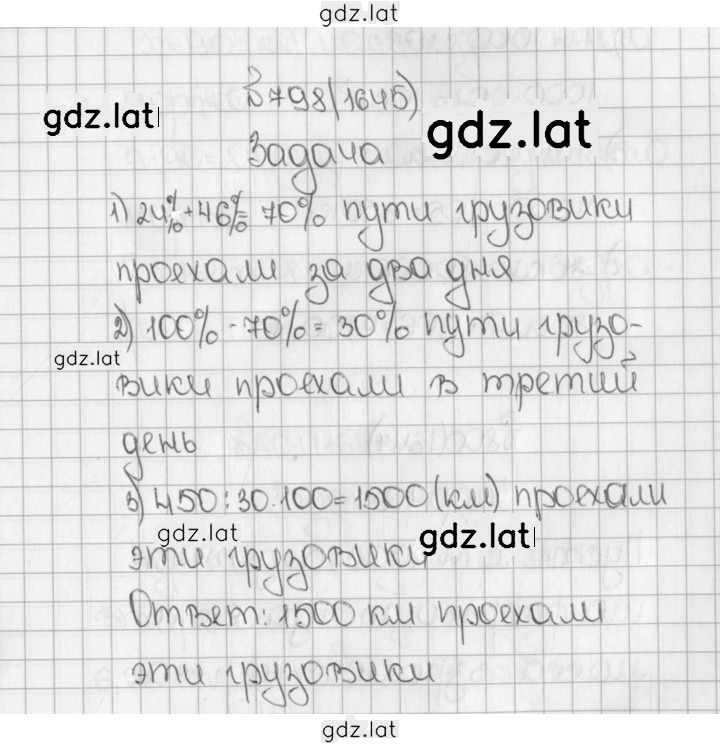 gdz.lat
№798(1645)
gdz.lat
gdz.lat
Задача
1) 24%+46%=70% пути грузовики
проехали за два дня
2) 100%-70%=30% пути грузо-
gdz.lat
вики проехали в третий
день
3) 450:30·100=1500(км) проехали
gdz.lat
gdz.lat
эти грузовики
Ответ: 1500 км проехали
эти грузовики
gdz.lat